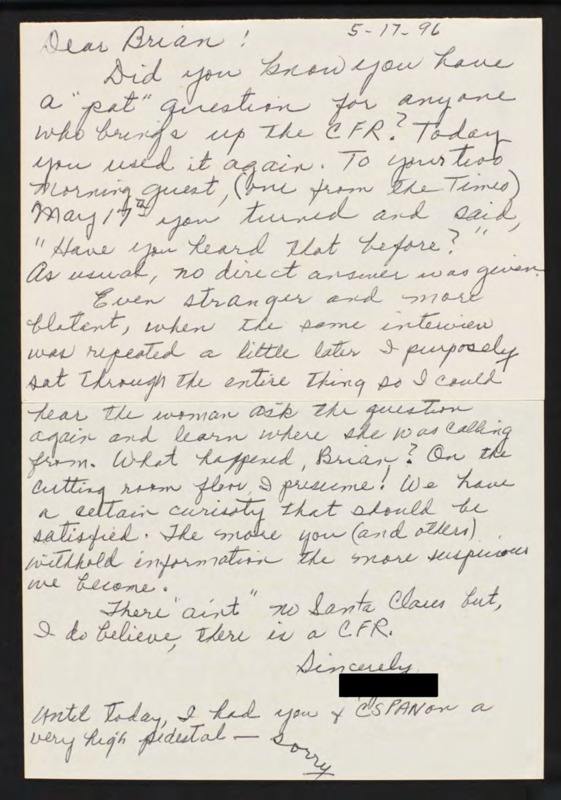 5-17-96
Dear Brian!
Did you know you have
a "pat" question for anyone
who brings up the CFR? Today
you used it again. To your two
morning guest, (one from the Times)
May 17th you turned and said,
"Have you heard that before?"
As usual, no direct answer was given.
Even stranger and more
blatent, when the same interview
was repeated a little later I purposely
sat through the entire thing so I could
hear the woman ask the question
again and learn where she was calling
from. What happened, Brian? On the
cutting room floor, I presume! We have
a certain curisoty that should be
satisfied. The more you (and others)
withhold information the more suspicious
we become.
There "aint" no Santa Claus but,
I do believe, there is a CFR.
Sincerely,
Until today, I had you & CSPAN on a
very high pedestal — Sorry